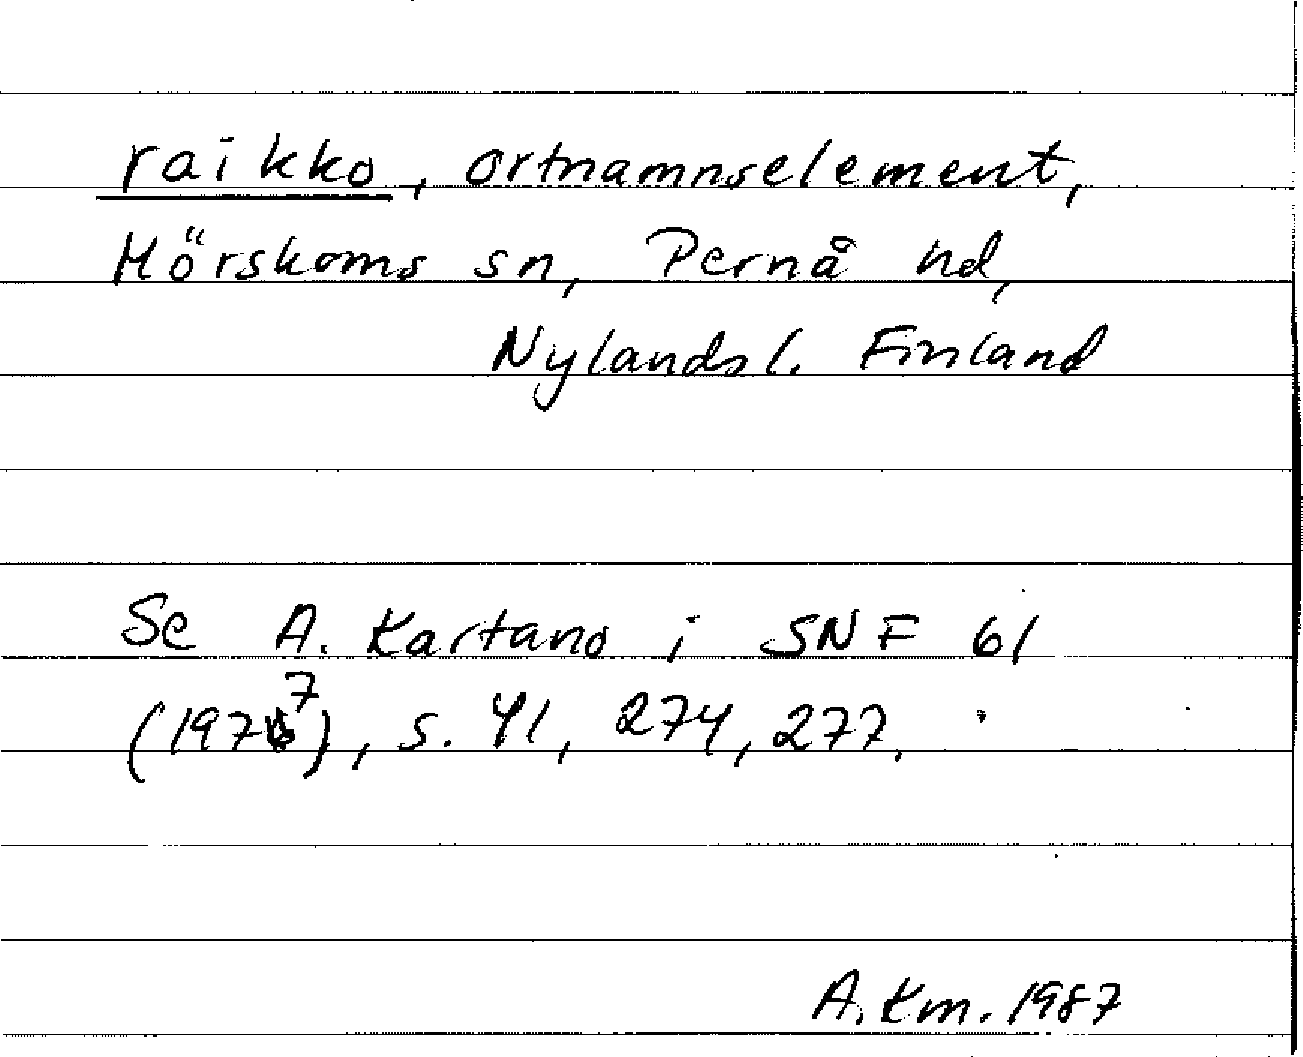 raikko, ortnamnselement,
Mörskoms sn, Pernå hd,
Nylands l. Finland
Se A. Kartano i SNF 61
(1977), s. 41, 274, 277.
A. Km. 1987